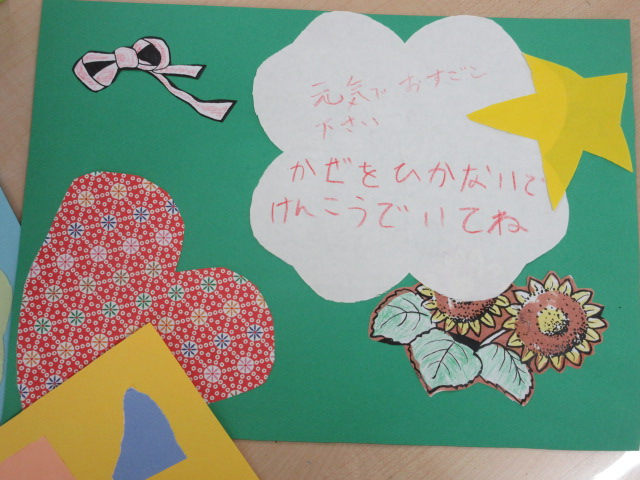 元気で おすごこ
下さい
かぜをひかないで
けんこうでいてね